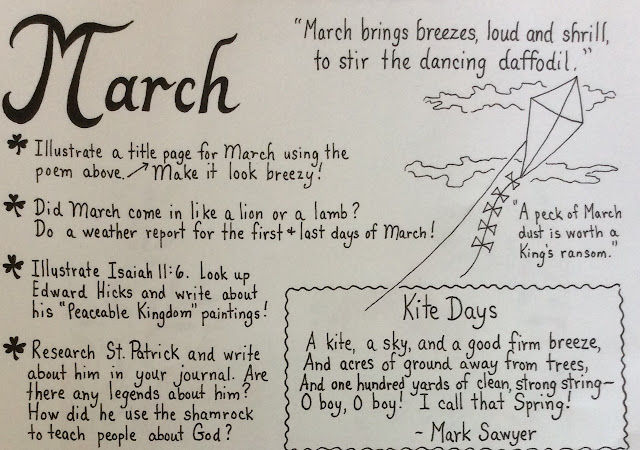 March
"March brings breezes, loud and shrill,
to stir the dancing daffodil."
Illustrate a title page for March using the
poem above. Make it look breezy!
Did March come in like a lion or a lamb?
Do a weather report for the first + last days of March!
Illustrate Isaiah 11:6. Look up
Edward Hicks and write about
his "Peaceable Kingdom" paintings!
Research St. Patrick and write
about him in your journal. Are
there any legends about him?
How did he use the shamrock
to teach people about God?
"A peck of March
dust is worth a
King's ransom."
Kite Days
A kite, a sky, and a good firm breeze,
And acres of ground away from trees,
And one hundred yards of clean, strong string—
O boy, O boy! I call that Spring!
~ Mark Sawyer